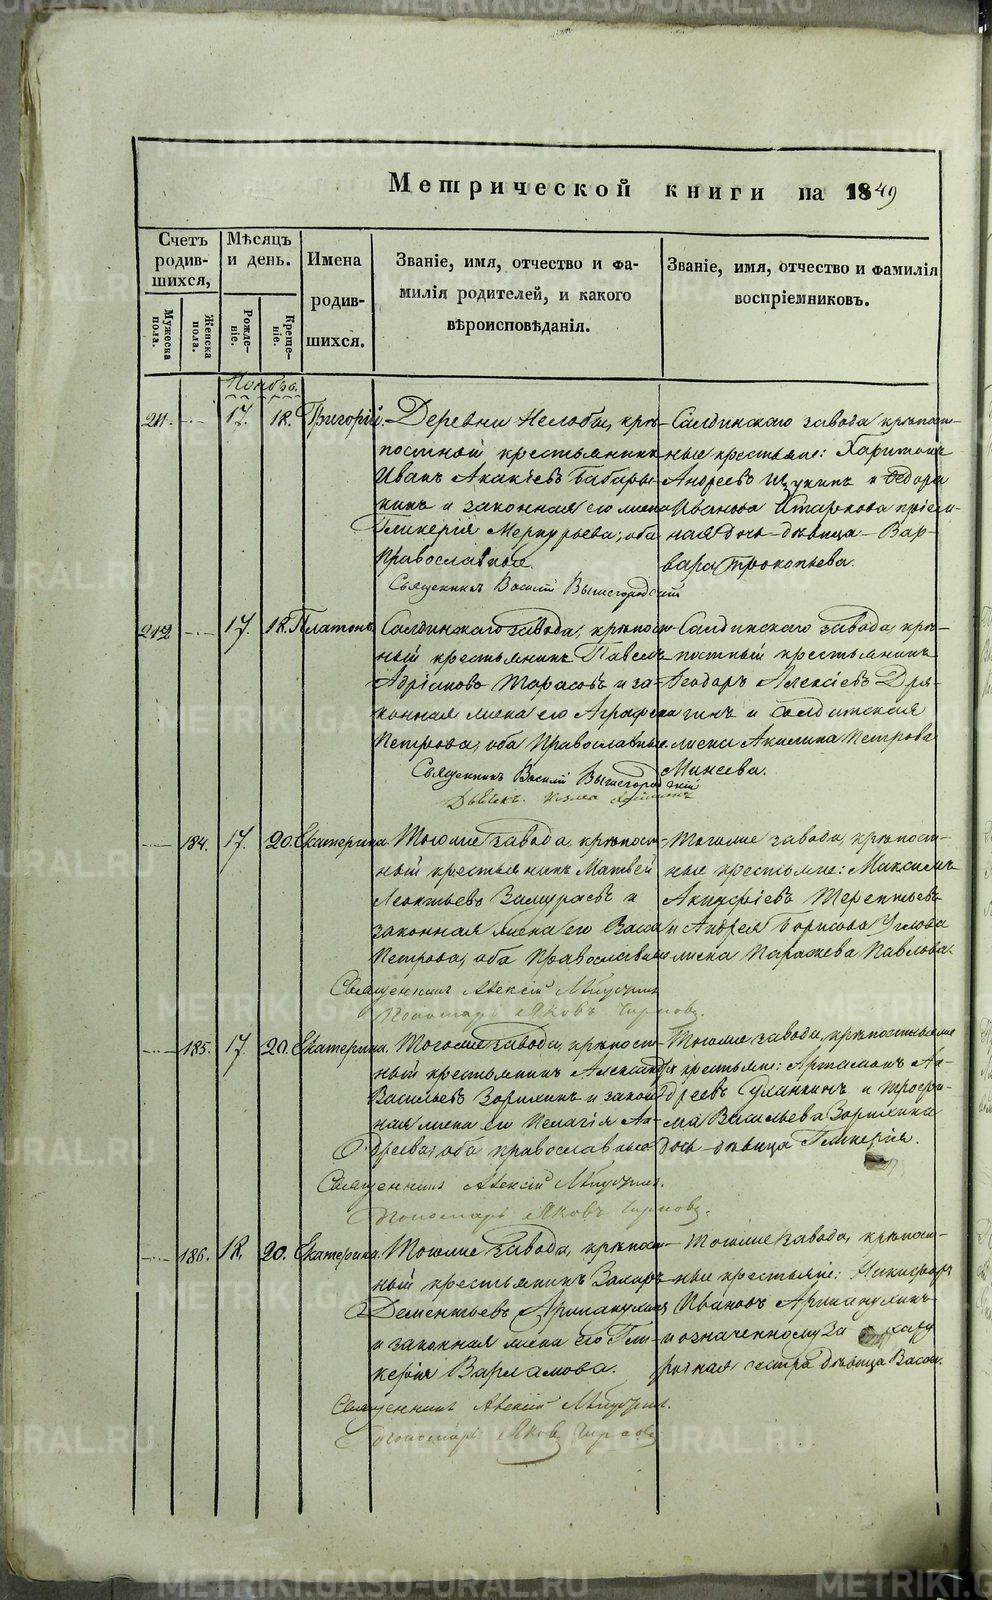 METRIKI.GASO-URAL.RU
Метрической книги на 1849
Счетъ родив-шихся,
Мѣсяцъ и день.
Имена родив-шихся.
Званіе, имя, отчество и фа-
милія родителей, и какого
вѣроисповѣданія.
Званіе, имя, отчество и фамилія
воспріемниковъ.
Мужеска пола.
Женска пола.
Рожде-ніе.
Креще-ніе.
Ноябрь.
211. 17. 18. Григорій. Деревни Нелобы, крѣ-
постной крестьянинъ
Иванъ Акакіевъ
и законная его жена
Гликерія Меркурьева, оба
православные.
Священникъ Василій Вышегородскій
Салдинскаго завода крѣпост-
ные крестьяне: Харитонъ
Андреевъ Щукинъ и Ѳедора
Иванова
ная дочь дѣвица Вар-
вара Прокопьева.
212. 17. 18. Платонъ. Салдинскаго завода, крѣпост-
ный крестьянинъ Павелъ
Адріановъ Тарасовъ и за-
конная жена его Аграфена
Петрова, оба православные.
Священникъ Василій Вышегородскій
Дьячекъ Козма
Салдинскаго завода, крѣ-
постный крестьянинъ
Ѳеодоръ Алексіевъ Дря-
гинъ и солдатская
жена Акилина Петрова
Минеева.
184. 17. 20. Екатерина. Тогоже завода, крѣпост-
ный крестьянинъ Матвей
Леонтьевъ Замураевъ и
законная жена его Васса
Петрова, оба православные
Священникъ Алексій
Пономарь Яковъ
Тогоже завода, крѣпост-
ные крестьяне: Максимъ
Терентьевъ
и Андрея Борисова Углова
жена Параскева Павлова.
185. 17. 20. Екатерина. Тогоже завода, крѣпост-
ный крестьянинъ Александръ
Васильевъ Зорихинъ и закон-
ная жена его Пелагія Ан-
дреева, оба православные
Священникъ Алексій
Пономарь Яковъ
Тогоже завода, крѣпостные
крестьяне: Артамонъ Ан-
дреевъ Суланкинъ и Трофи-
ма Васильева Зорихина
дочь дѣвица Гликерія.
186. 18. 20. Екатерина. Тогоже завода, крѣпост-
ный крестьянинъ Захаръ
Дементьевъ
и законная жена его Гли-
керія Варламова.
Священникъ Алексій
Пономарь Яковъ
Тогоже завода, крѣпост-
ные крестьяне: Никифоръ
Ивановъ
и означенному Захару
родная сестра дѣвица Васса.